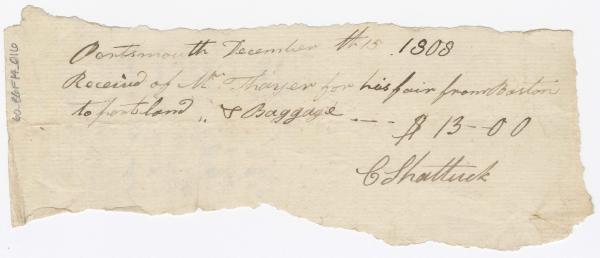 Portsmouth December th 15 1808
Received of Mr Thayer for his fair from Boston
to portland ,, & Baggage --- $ 13-00
C Shattuck